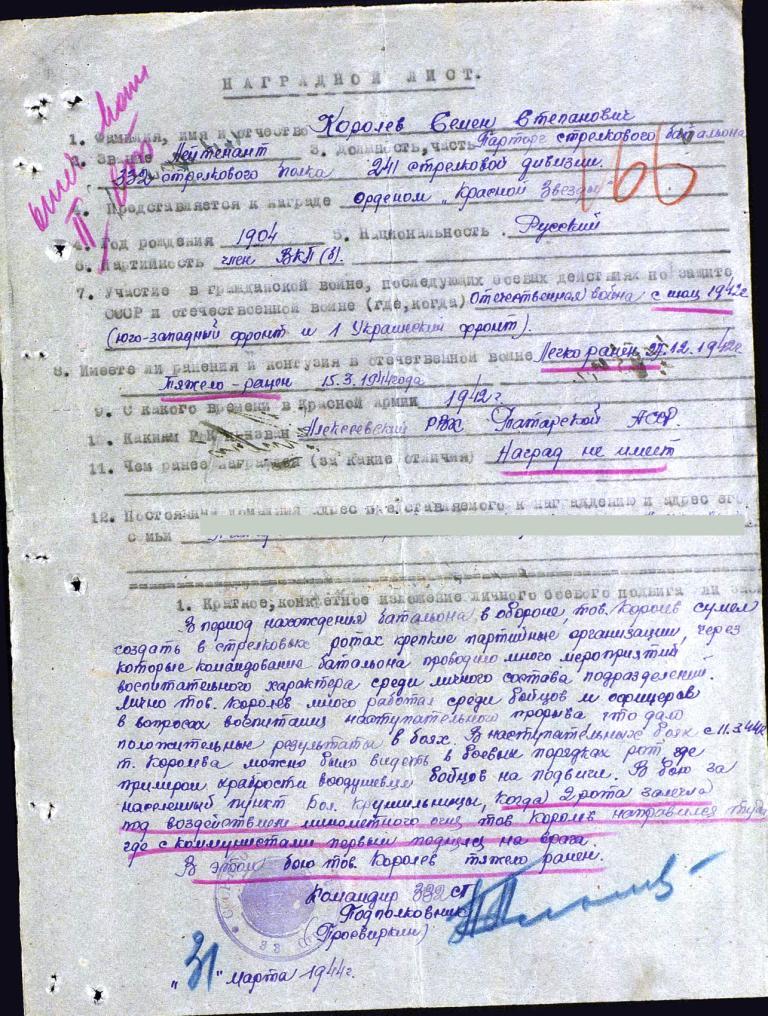 НАГРАДНОЙ ЛИСТ.
1. Фамилия, имя и отчество Королев Семен Степанович
2. Звание Лейтенант 3. Должность, часть Парторг стрелкового батальона
332 стрелкового полка 241 стрелковой дивизии.
166
Представляется к награде Орденом „Красной Звезды"
4. Год рождения 1904 5. Национальность. Русский
6. Партийность член ВКП(б).
7. Участие в гражданской войне, последующих боевых действиях по защите
СССР и отечественной войне (где, когда) Отечественная война с мая 1942г
(юго-западный фронт и 1 Украинский фронт).
8. Имеете ли ранения и контузия в отечественной войне Легко ранен 27.12.1942г
Тяжело-ранен 15.3.1944года
9. С какого времени в Красной армии 1942г.
10. Каким РВК призван Алексеевский РВК Татарской АССР.
11. Чем ранее награжден (за какие отличия) Наград не имеет
12. Постоянный домашний адрес представляемого к награждению и адрес его
семьи
1. Краткое, конкретное изложение личного боевого подвига или
В период нахождения батальона в обороне, тов. Королев сумел
создать в стрелковых ротах крепкие партийные организации, через
которые командование батальона проводило много мероприятий
воспитательного характера среди личного состава подразделений.
Лично тов. Королев много работал среди бойцов и офицеров
в вопросах воспитания наступательного прорыва что дало
положительные результаты в боях. В наступательных боях с 11.3.44г
т. Королева можно было видеть в боевых порядках рот где
примером храбрости воодушевлял бойцов на подвиги. В бою за
населенный пункт Бол. когда 2 рота залегла
под воздействием минометного огня тов Королев направился туда
где с коммунистами первый поднялся на врага.
В этом бою тов. Королев тяжело ранен.
Командир 332 СП
Подполковник
(Проевиркин)
„31" марта 1944г.